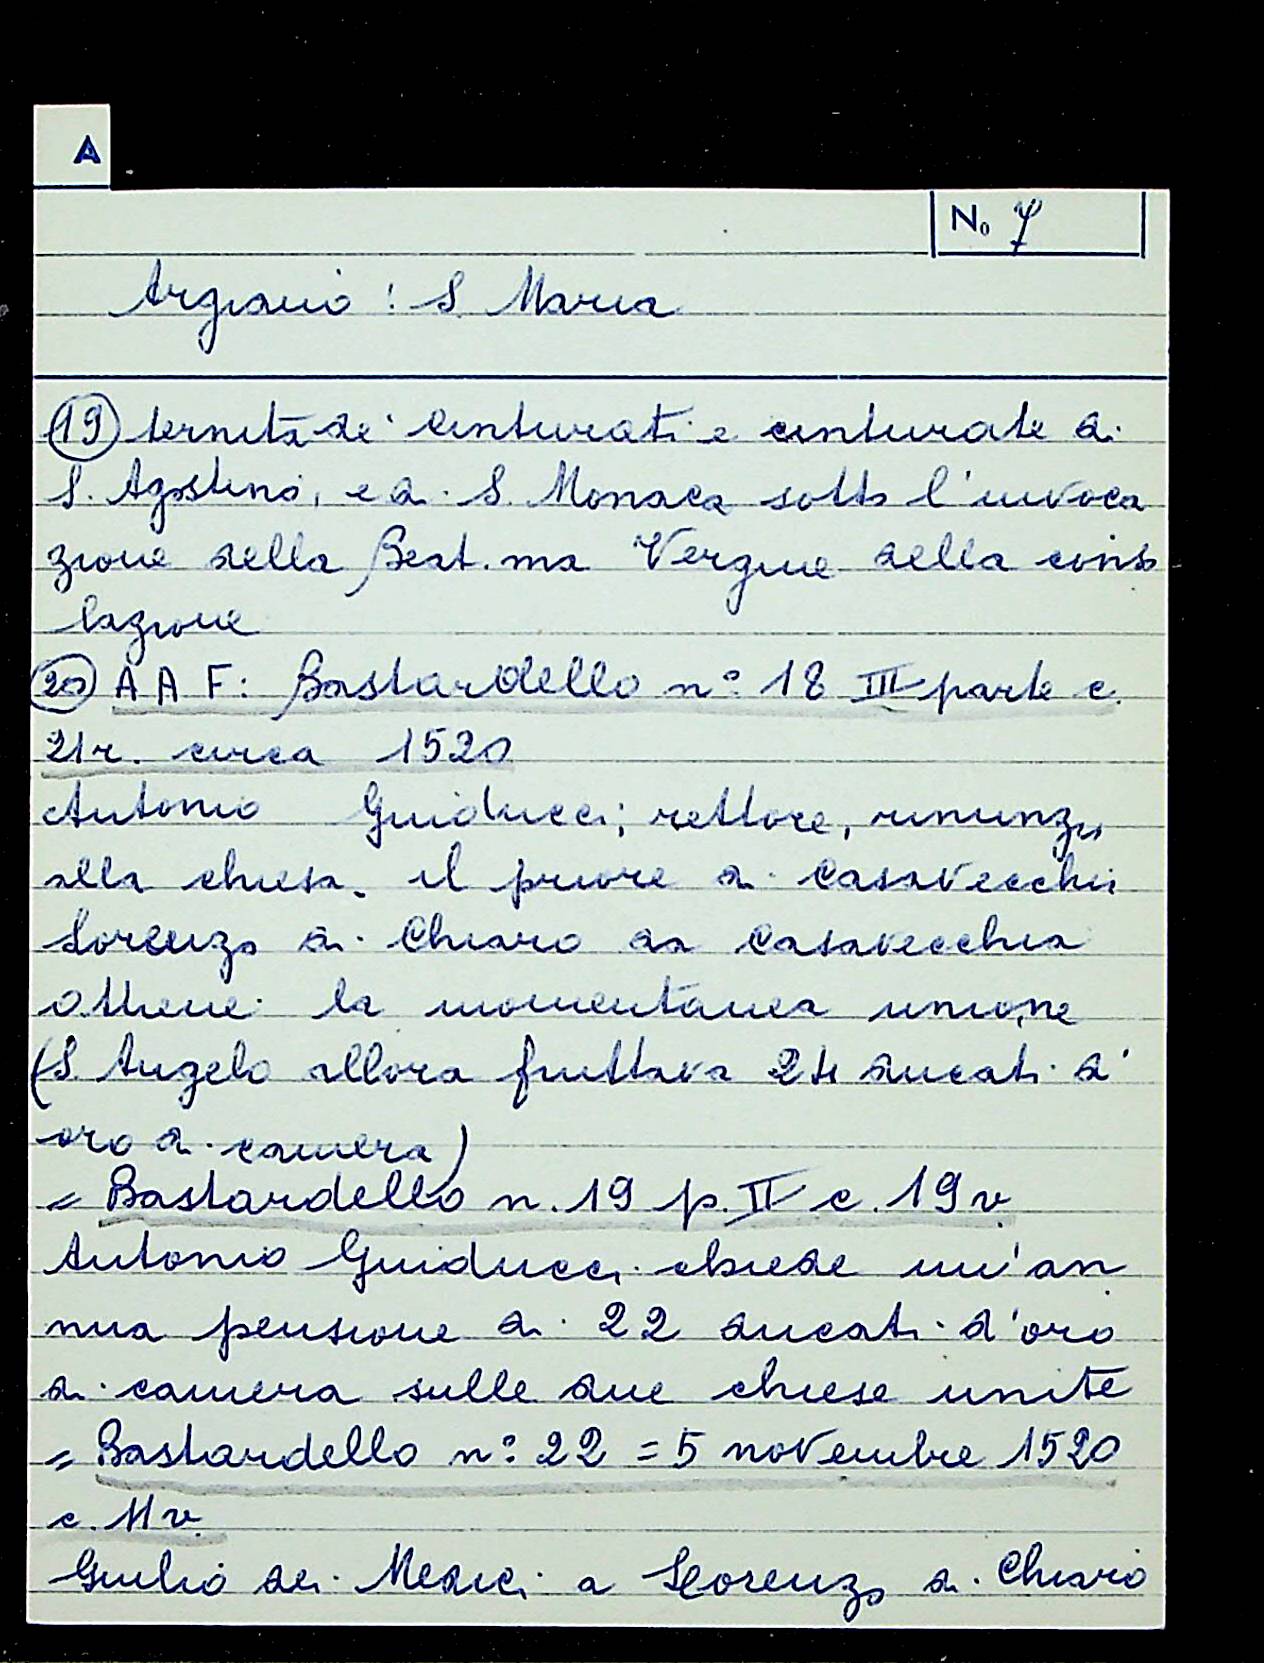 A
No 7
Argiano: S. Maria
(19) ternità de' cinturati e cinturate di
S. Agostino, e di S. Monaca sotto l'invoca
zione della Beat.ma Vergine della conso
lazione
(20) A A F: Bastardello n° 18 III parte c.
21r. circa 1520
Antonio Guiducci, rettore, rinunzia
alla chiesa. il priore di Casavecchia
Lorenzo di Chiaro da Casavecchia
ottiene la momentanea unione
(S. Angelo allora fruttava 24 ducati d'
oro di camera)
= Bastardello n. 19 p. II c. 19v
Antonio Guiducci chiede un'an
nua pensione di 22 ducati d'oro
di camera sulle due chiese unite
= Bastardello n° 22 = 5 novembre 1520
c. 11v.
Giulio dei Medici a Lorenzo di Chiaro